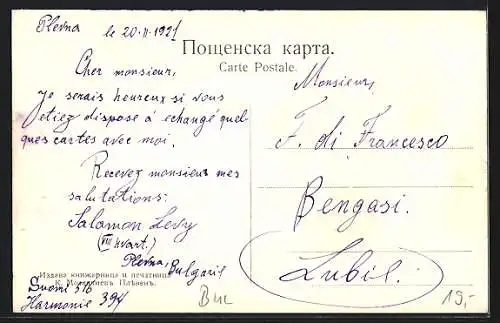 Plevna le 20-II-1921
Пощенска карта.
Carte Postale.
Cher monsieur,
Je serais heureux si vous
etiez dispose à echangé quel-
ques cartes avec moi.
Recevez monsieur mes
salutations:
Salamon Levy
(VIII kvart.)
Plevna, Bulgarie
Издава книжарница и печатница
Suomi 516
Harmonie 394
Monsieur,
F. di Francesco
Bengasi.
Lubil.
Buc
19,-